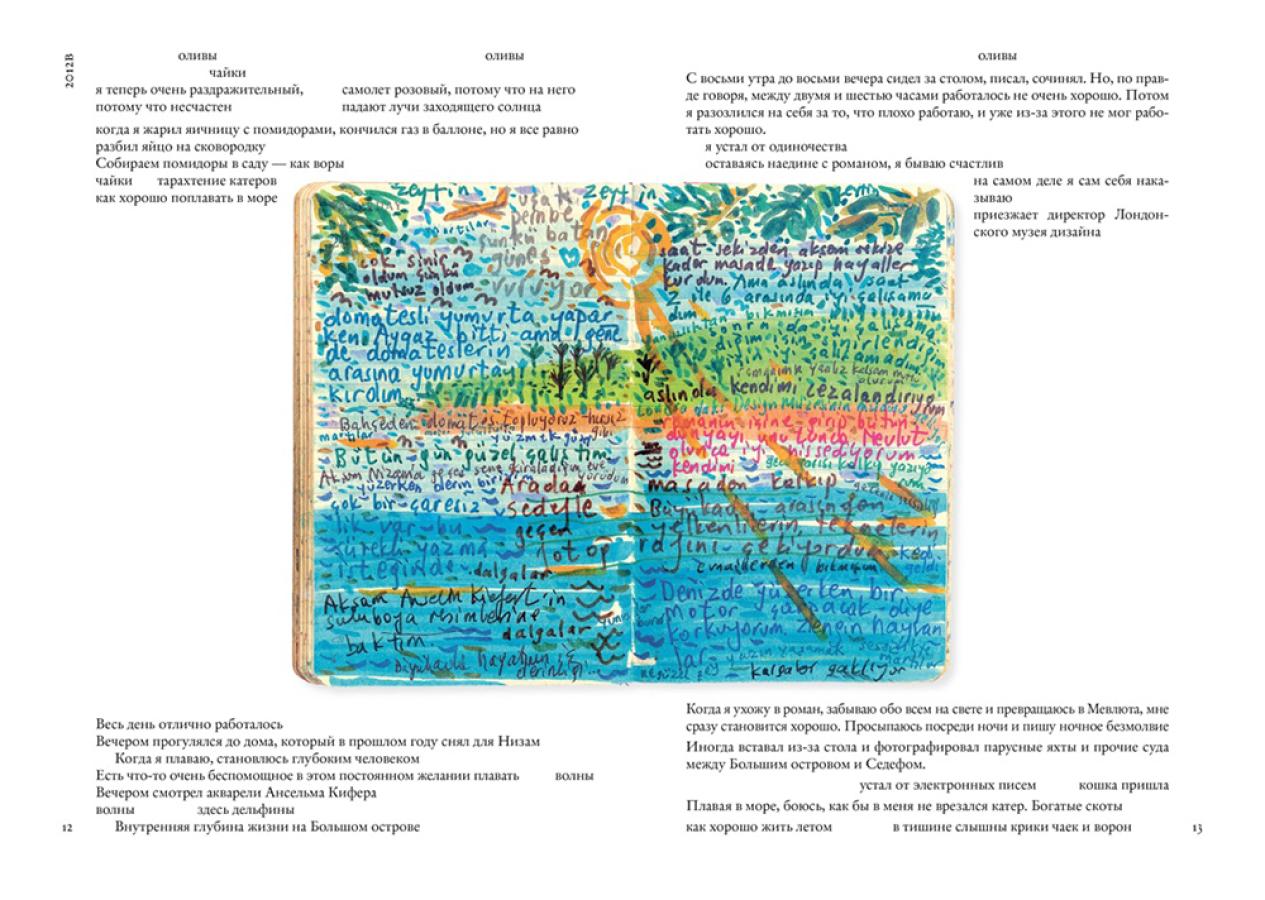 2012В
оливы
оливы
чайки
я теперь очень раздражительный,
потому что несчастен
самолет розовый, потому что на него
падают лучи заходящего солнца
когда я жарил яичницу с помидорами, кончился газ в баллоне, но я все равно
разбил яйцо на сковородку
Собираем помидоры в саду — как воры
чайки тарахтение катеров
как хорошо поплавать в море
оливы
С восьми утра до восьми вечера сидел за столом, писал, сочинял. Но, по прав-
де говоря, между двумя и шестью часами работалось не очень хорошо. Потом
я разозлился на себя за то, что плохо работаю, и уже из-за этого не мог рабо-
тать хорошо.
я устал от одиночества
оставаясь наедине с романом, я бываю счастлив
на самом деле я сам себя нака-
зываю
приезжает директор Лондон-
ского музея дизайна
zeytin
uçak
pembe
çünkü batan
güneş
vuruyor
çok sinir
oldum çünkü
mutsuz oldum
domatesli yumurta yapar
ken Aygaz bitti ama gene
de domateslerin
arasına yumurtayı
kırdım
Bahçeden domates topluyoruz hırsız
gibi
martılar
yüzmek güzel
Bütün gün güzel çalıştım
Akşam Nizama geçen sene kiraladığım eve
yürüdüm
yüzerken derin biriyim
çok bir çaresiz
lik var bu
sürekli yazma
isteğinde
dalgalar
Arada
sedefle
geçen
fotoğ
Akşam Anselm Kiefer'in
suluboya resimlerine
baktım
dalgalar
Büyükada hayatının iç
derinliği
zeytin
saat sekizden akşam sekize
kadar masada yazıp hayaller
kurdum. Ama aslında saat
2 ile 6 arasında iyi çalışama
dım
sonra da iyi çalışama
dığım için sinirlendiğim
için iyi çalışamadım
aslında kendimi cezalandırıyorum
romanın içine girip bütün
dünyayı unutunca Mevlut
olunca iyi hissediyorum
kendimi
gece yarısı kalkıp yazıyo
rum
masadan kalkıp
Büyükada arasından
yelkenlilerin, teknelerin
rafını çekiyordum
kedi
geldi
emaillerden bıkmışım
Denizde yüzerken bir
motor çarpacak diye
korkuyorum. zengin hayvan
lar
kargalar gaklıyor
Весь день отлично работалось
Вечером прогулялся до дома, который в прошлом году снял для Низам
Когда я плаваю, становлюсь глубоким человеком
Есть что-то очень беспомощное в этом постоянном желании плавать волны
Вечером смотрел акварели Ансельма Кифера
волны здесь дельфины
Внутренняя глубина жизни на Большом острове
12
Когда я ухожу в роман, забываю обо всем на свете и превращаюсь в Мевлюта, мне
сразу становится хорошо. Просыпаюсь посреди ночи и пишу ночное безмолвие
Иногда вставал из-за стола и фотографировал парусные яхты и прочие суда
между Большим островом и Седефом.
устал от электронных писем кошка пришла
Плавая в море, боюсь, как бы в меня не врезался катер. Богатые скоты
как хорошо жить летом в тишине слышны крики чаек и ворон
13